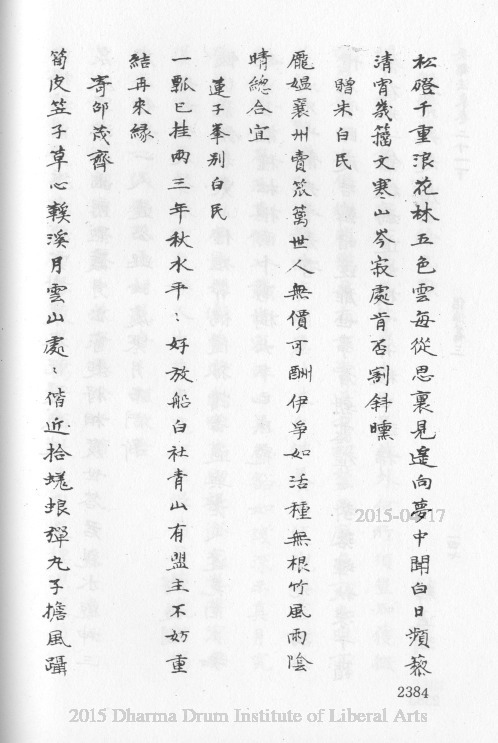 松磴千重浪花林五色雲每從思裏見遙向夢中聞白日頻藜
清宵幾籥文寒山岑寂處肯否割斜曛
贈朱白民
龐媼襄州賣笊籬世人無價可酬伊爭如活種無根竹風雨陰
晴總合宜
蓮子峯別白民
一瓢已挂兩三年秋水平：好放船白社青山有盟主不妨重
結再來緣
寄邵茂齊
筍皮笠子草心鞵溪月雲山處：偕近拾蜣蜋彈九子擔風躡
2384
2015-04-17
2015 Dharma Drum Institute of Liberal Arts